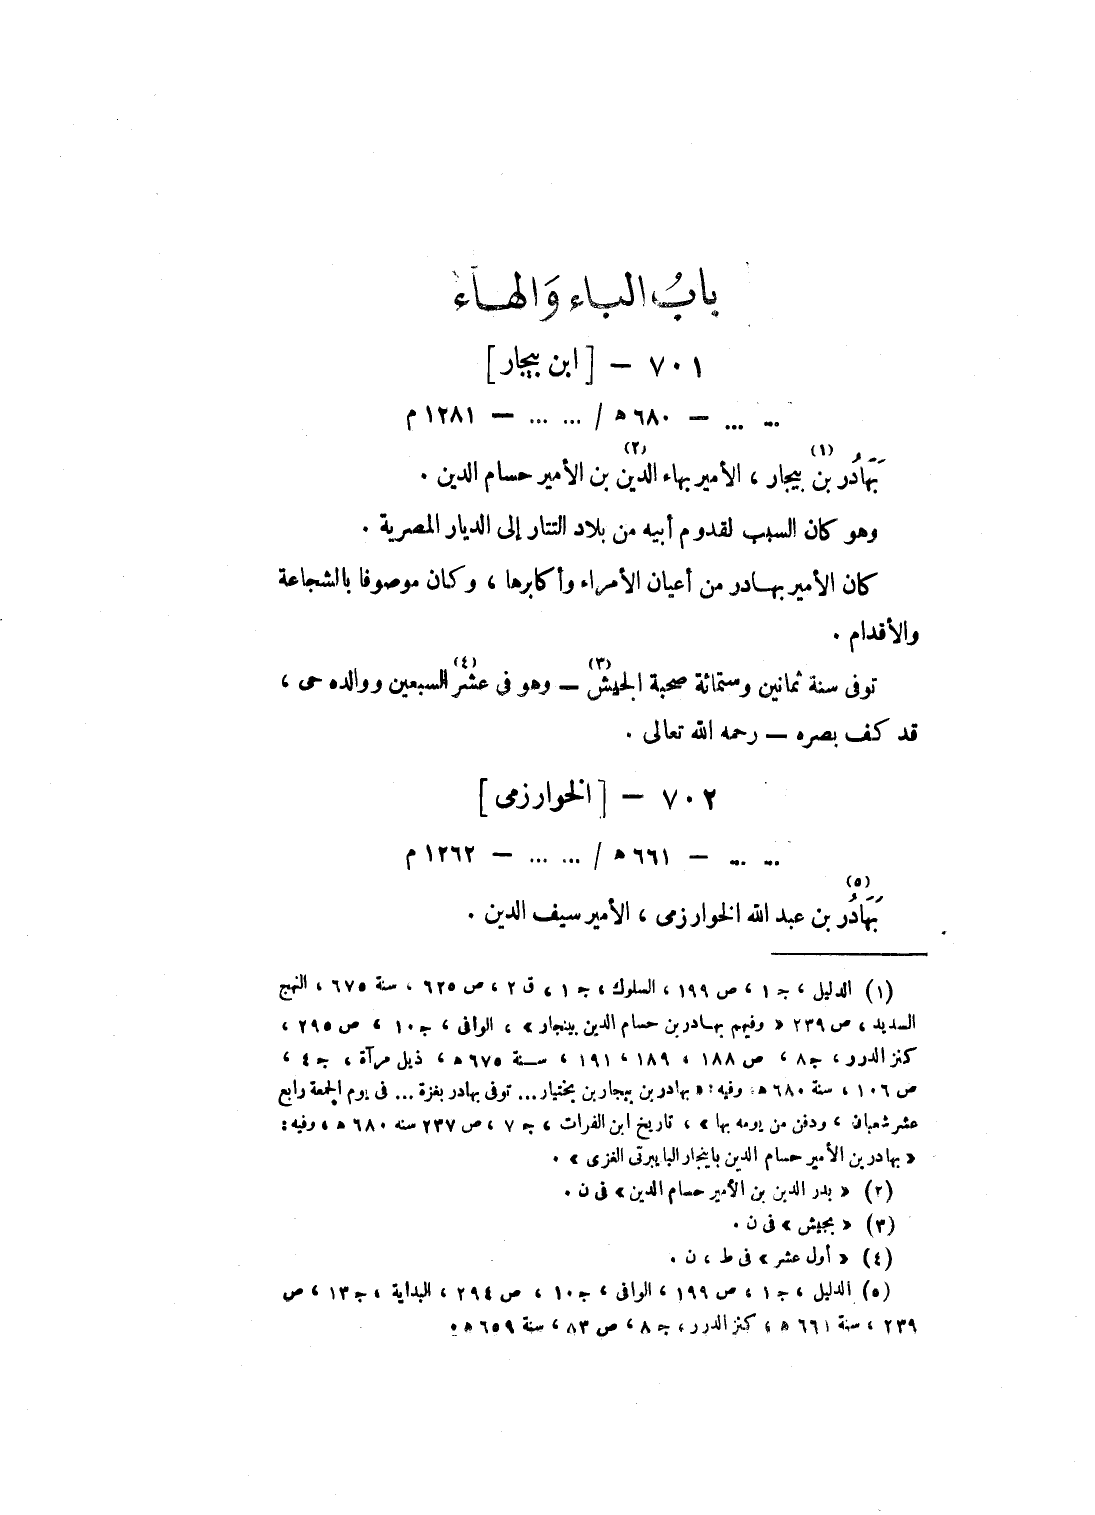 بابُ الباء وَالهاء
٧٠١ – [ ابن بيجار ]
... ... – ٦٨٠ ه / ... ... – ١٢٨١ م
بَهَادُر بن(١) بيجار ، الأمير بهاء الدين(٢) بن الأمير حسام الدين .
وهو كان السبب لقدوم أبيه من بلاد التتار إلى الديار المصرية .
كان الأمير بهادر من أعيان الأمراء وأكابرها ، وكان موصوفا بالشجاعة
والأقدام .
توفى سنة ثمانين وستمائة صحبة الجيش(٣) – وهو فى عشر(٤) السبعين ووالده حى ،
قد كف بصره – رحمه الله تعالى .
٧٠٢ – [ الخوارزمى ]
... ... – ٦٦١ ه / ... ... – ١٢٦٢ م
بَهَادُر(٥) بن عبد الله الخوارزمى ، الأمير سيف الدين .
(١) الدليل ، ج ١ ، ص ١٩٩ ، السلوك ، ج ١ ، ق ٢ ، ص ٦٢٥ ، سنة ٦٧٥ ، النهج
السديد ، ص ٢٣٩ « وفيهم بهادر بن حسام الدين بينجار » ، الوافى ، ج ١٠ ، ص ٢٩٥ ،
كنز الدرر ، ج ٨ ، ص ١٨٨ ، ١٨٩ ، ١٩١ ، سنة ٦٧٥ ه ، ذيل مرآة ، ج ٤ ،
ص ١٠٦ ، سنة ٦٨٠ ه ، وفيه : « بهادر بن بيجار بن بختيار ... توفى بهادر بغزة ... فى يوم الجمعة رابع
عشر شعبان ، ودفن من يومه بها » ، تاريخ ابن الفرات ، ج ٧ ، ص ٢٣٧ سنه ٦٨٠ ه ، وفيه :
« بهادر بن الأمير حسام الدين باينجار البايبرتى الغزى » .
(٢) « بدر الدين بن الأمير حسام الدين » فى ن .
(٣) « بجيش » فى ن .
(٤) « أول عشر » فى ط ، ن .
(٥) الدليل ، ج ١ ، ص ١٩٩ ، الوافى ، ج ١٠ ، ص ٢٩٤ ، البداية ، ج ١٣ ، ص
٢٣٩ ، سنة ٦٦١ ه ، كنز الدرر ، ج ٨ ، ص ٨٣ ، سنة ٦٥٩ ه .